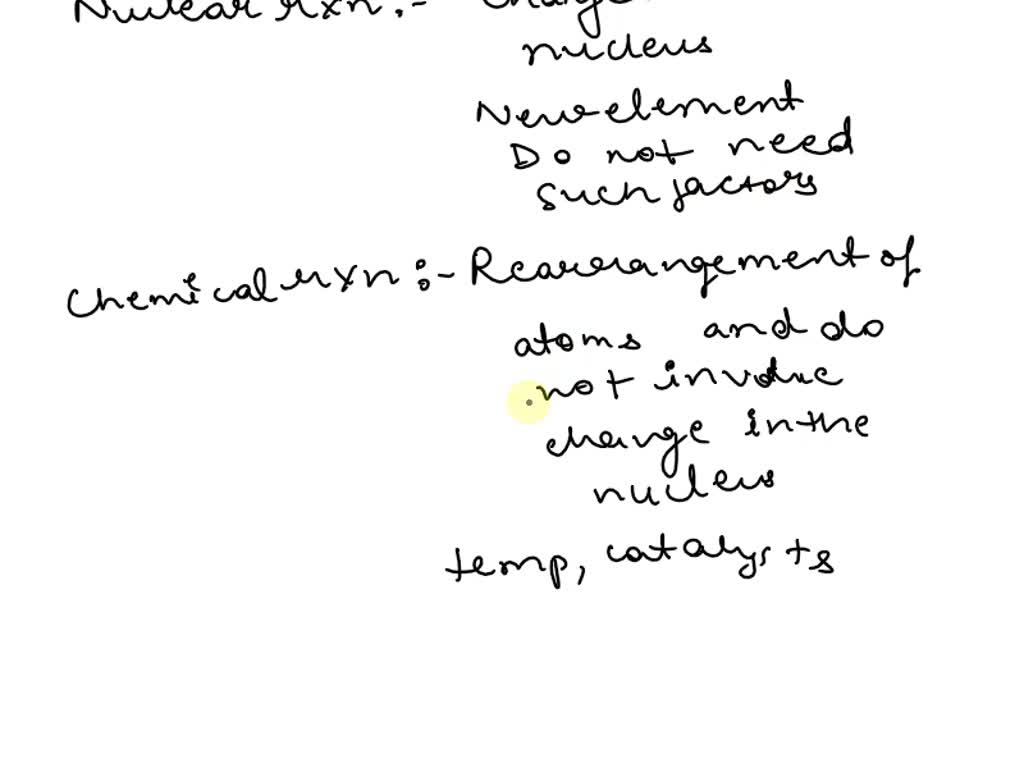 Nuclear rxn :- Change
nucleus
New element
Do not need
such factors
Chemical rxn :- Rearrangement of
atoms and do
not involve
change in the
nucleus
temp, catalysts